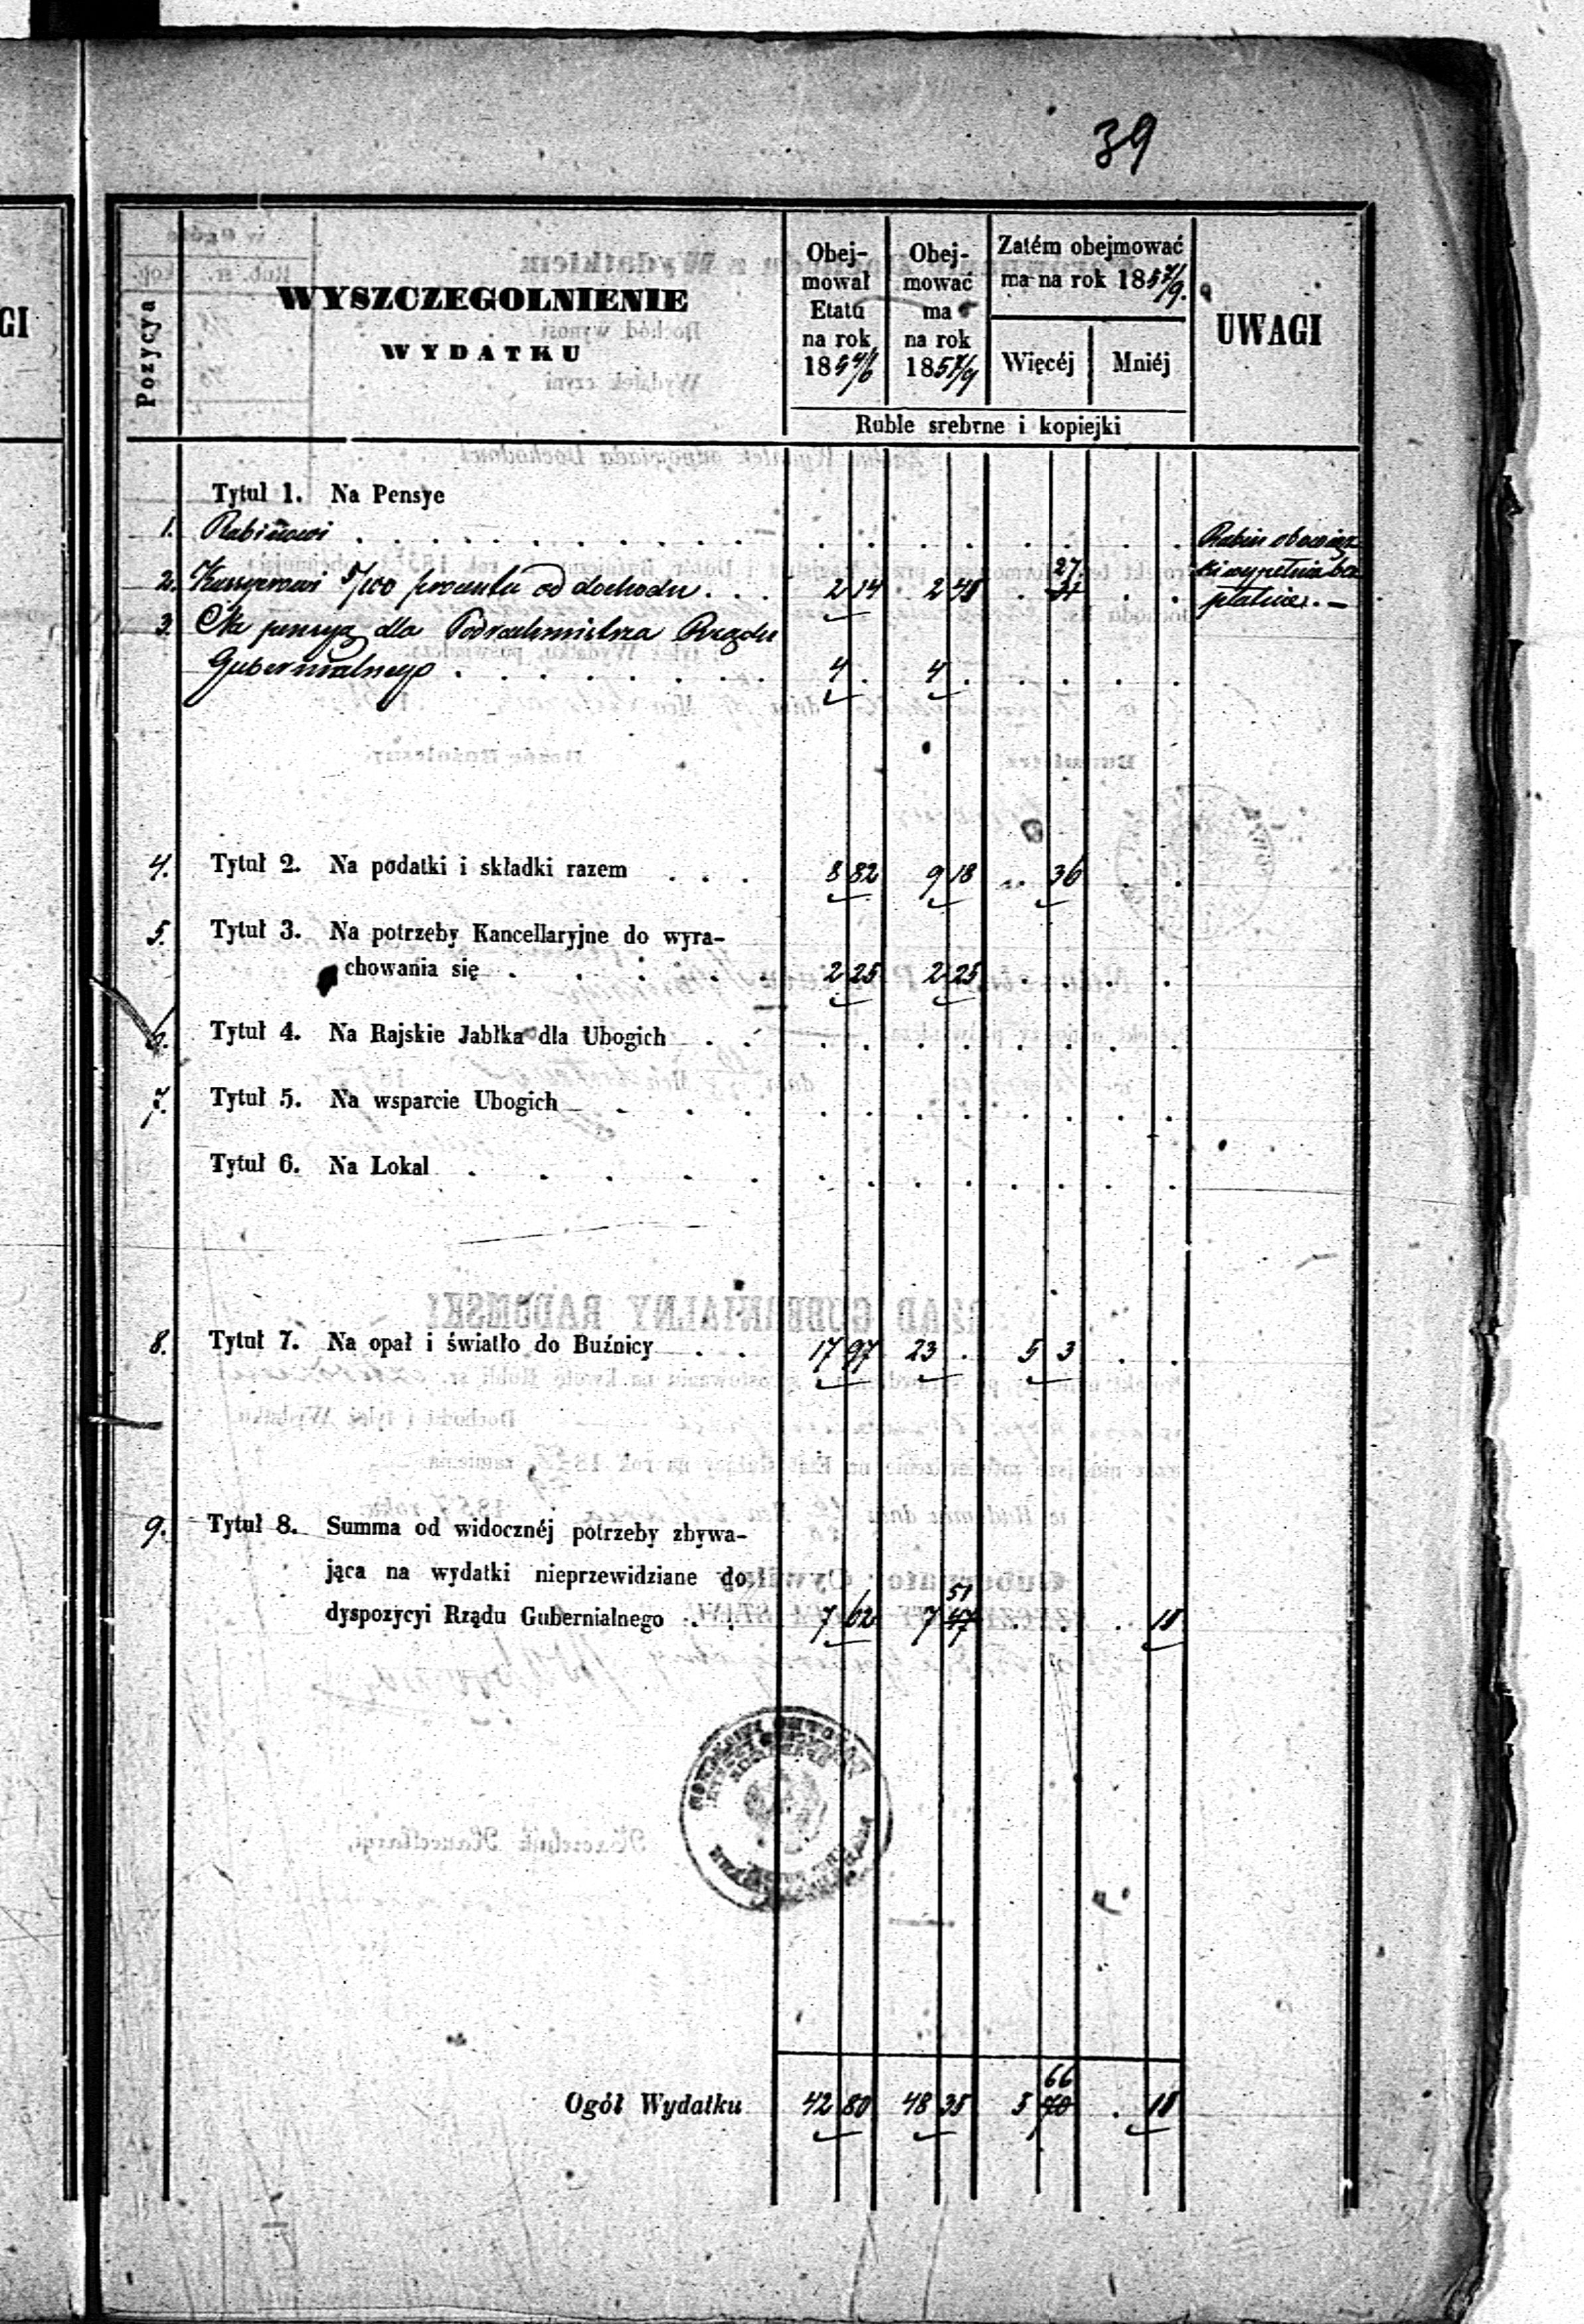 39
GI
Pozycya
WYSZCZEGOLNIENIE
WYDATKU
Obej-
mował
Etatu
na rok
185 4/6
Obej-
mować
ma
na rok
185 7/9
Zatém obejmować
ma na rok 185 7/9.
Więcéj
Mniéj
Ruble srebrne i kopiejki
UWAGI
Tytuł 1. Na Pensye
1. Rabinowi . . . . . . . . . .
2. Kassyerowi 5/100 procentu od dochodu . . . 2 14 2 48 . 27 34 . .
3. Na pensyą dla Podrachmistrza Rządu
Gubernialnego . . . . . . . 4 . 4 . . . . .
Rabin obowiąz
ki wypełnia bez
płatnie. —
4. Tytuł 2. Na podatki i składki razem . . . 8 82 9 18 . 36 . .
5. Tytuł 3. Na potrzeby Kancellaryjne do wyra-
chowania się . . . . . 2 25 2 25 . . . .
6. Tytuł 4. Na Rajskie Jabłka dla Ubogich . . . . . . . . . .
7. Tytuł 5. Na wsparcie Ubogich . . . . . . . . . . .
Tytuł 6. Na Lokal . . . . . . . . . . . . .
8. Tytuł 7. Na opał i światło do Buźnicy . . 17 97 23 . 5 3 . .
9. Tytuł 8. Summa od widocznéj potrzeby zbywa-
jąca na wydatki nieprzewidziane do
dyspozycyi Rządu Gubernialnego . . 7 62 7 51 47 . . . 18
Ogół Wydatku 42 80 48 35 5 66 . 18